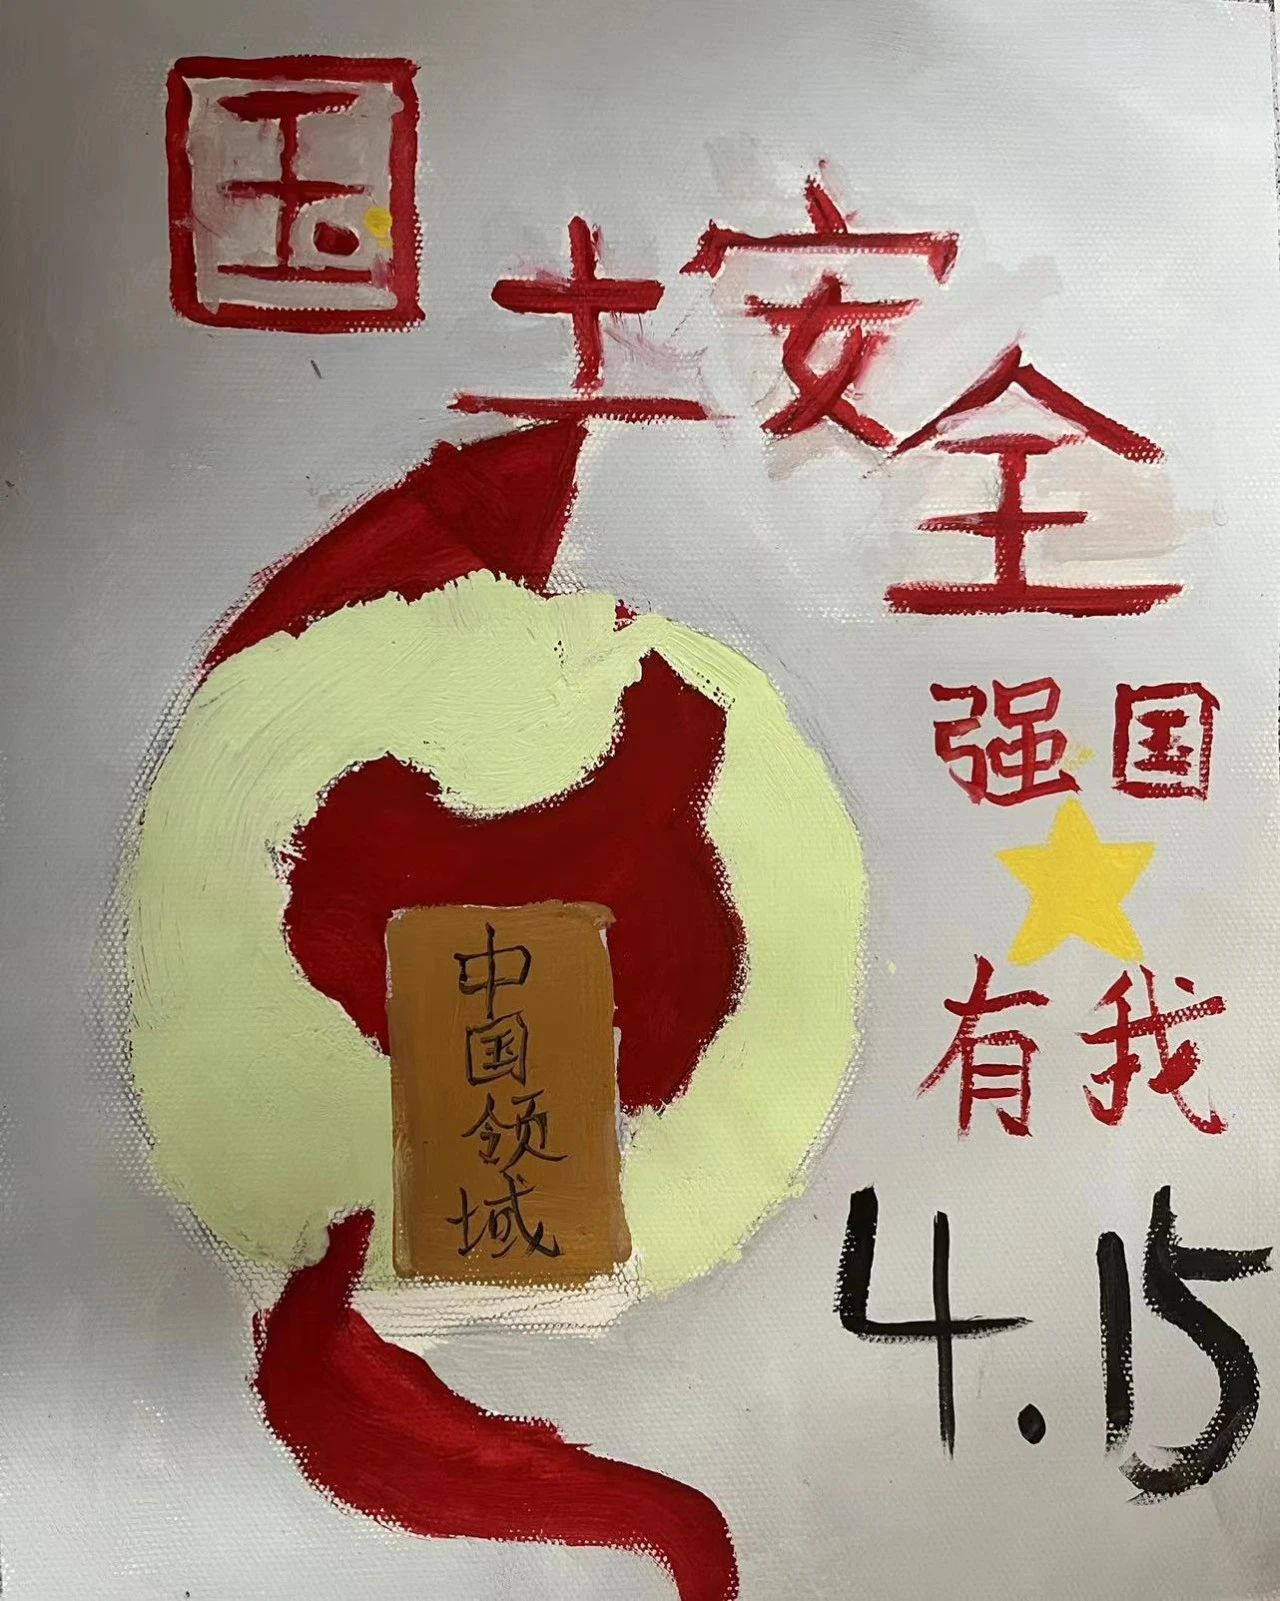 国土安全
强国
有我
4.15
中国领域